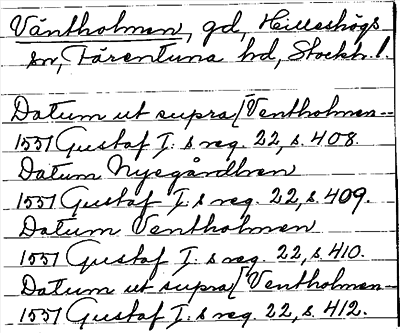 Väntholmen, gd, Hilleshögs
sn, Färentuna hd, Stockh. l.
Datum ut supra [Ventholmen--
1551 Gustaf I:s reg. 22, s. 408.
Datum Nyegårdhen
1551 Gustaf I:s reg. 22, s. 409.
Datum Ventholmen
1551 Gustaf I:s reg. 22, s. 410.
Datum ut supra [Ventholmen--
1551 Gustaf I:s reg. 22, s. 412.